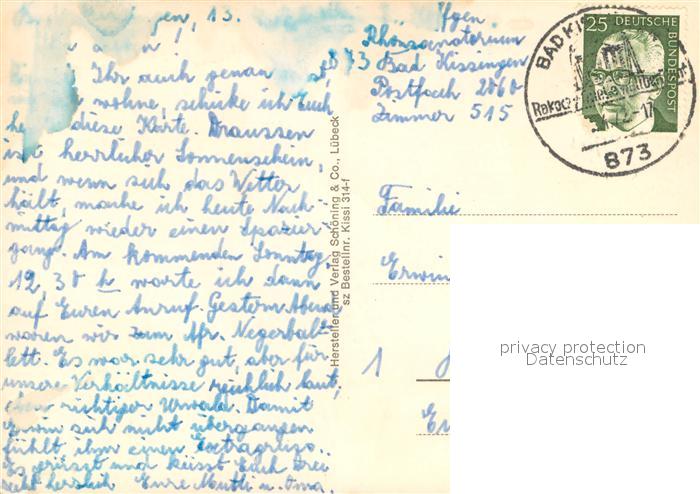 gen, 13.
Ihr auch genau
wohne, schicke ich Euch
diese Karte. Draussen
ist herrlicher Sonnenschein,
und wenn sich das Wetter
hält, mache ich heute Nach-
mittag wieder einen Spazier-
gang. Am kommenden Sonntag,
12,30 h warte ich dann
auf Euren Anruf. Gestern Abend
waren wir zum Afr. Negerball-
lett. Es war sehr gut, aber für
unsere Verhältnisse reichlich laut,
eben richtiger Urwald. Damit
Erwin sich nicht übergangen
fühlt ihm einen Extragruss.
Es grüsst und küsst Euch drei
sehr herzlich Eure Mutti u. Oma.
Hersteller und Verlag Schöning & Co., Lübeck
sz Bestellnr. Kissi 314-f
Rhönsanatorium
873 Bad Kissingen
Postfach 2860
Zimmer 515
25 DEUTSCHE
BUNDESPOST
BAD KISS
873
Familie
Erwin
1
privacy protection
Datenschutz